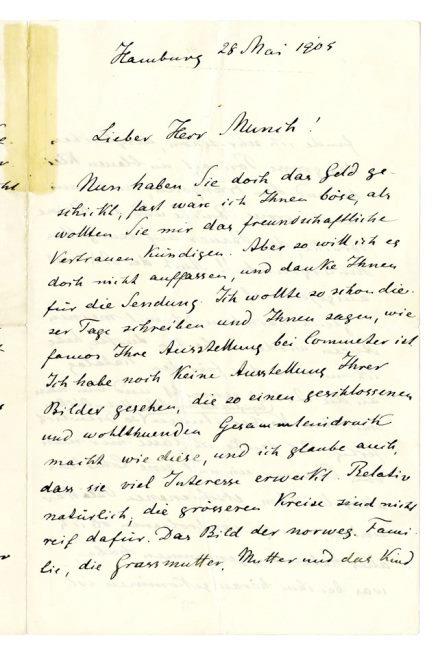 Hamburg 28 Mai 1905
Lieber Herr Munch!
Nun haben Sie doch das Geld ge-
schickt, fast wäre ich Ihnen böse, als
wollten Sie mir das freundschaftliche
Vertrauen kündigen. Aber so will ich es
doch nicht auffassen, und danke Ihnen
für die Sendung. Ich wollte so schon die-
ser Tage schreiben und Ihnen sagen, wie
famos Ihre Ausstellung bei Commeter ist
Ich habe noch keine Ausstellung Ihrer
Bilder gesehen, die so einen geschlossenen
und wohlthuenden Gesammteindruck
macht wie diese, und ich glaube auch,
dass sie viel Interesse erweckt. Relativ
natürlich, die grösseren Kreise sind nicht
reif dafür. Das Bild der norweg. Fami-
lie, die Grossmutter, Mutter und das Kind